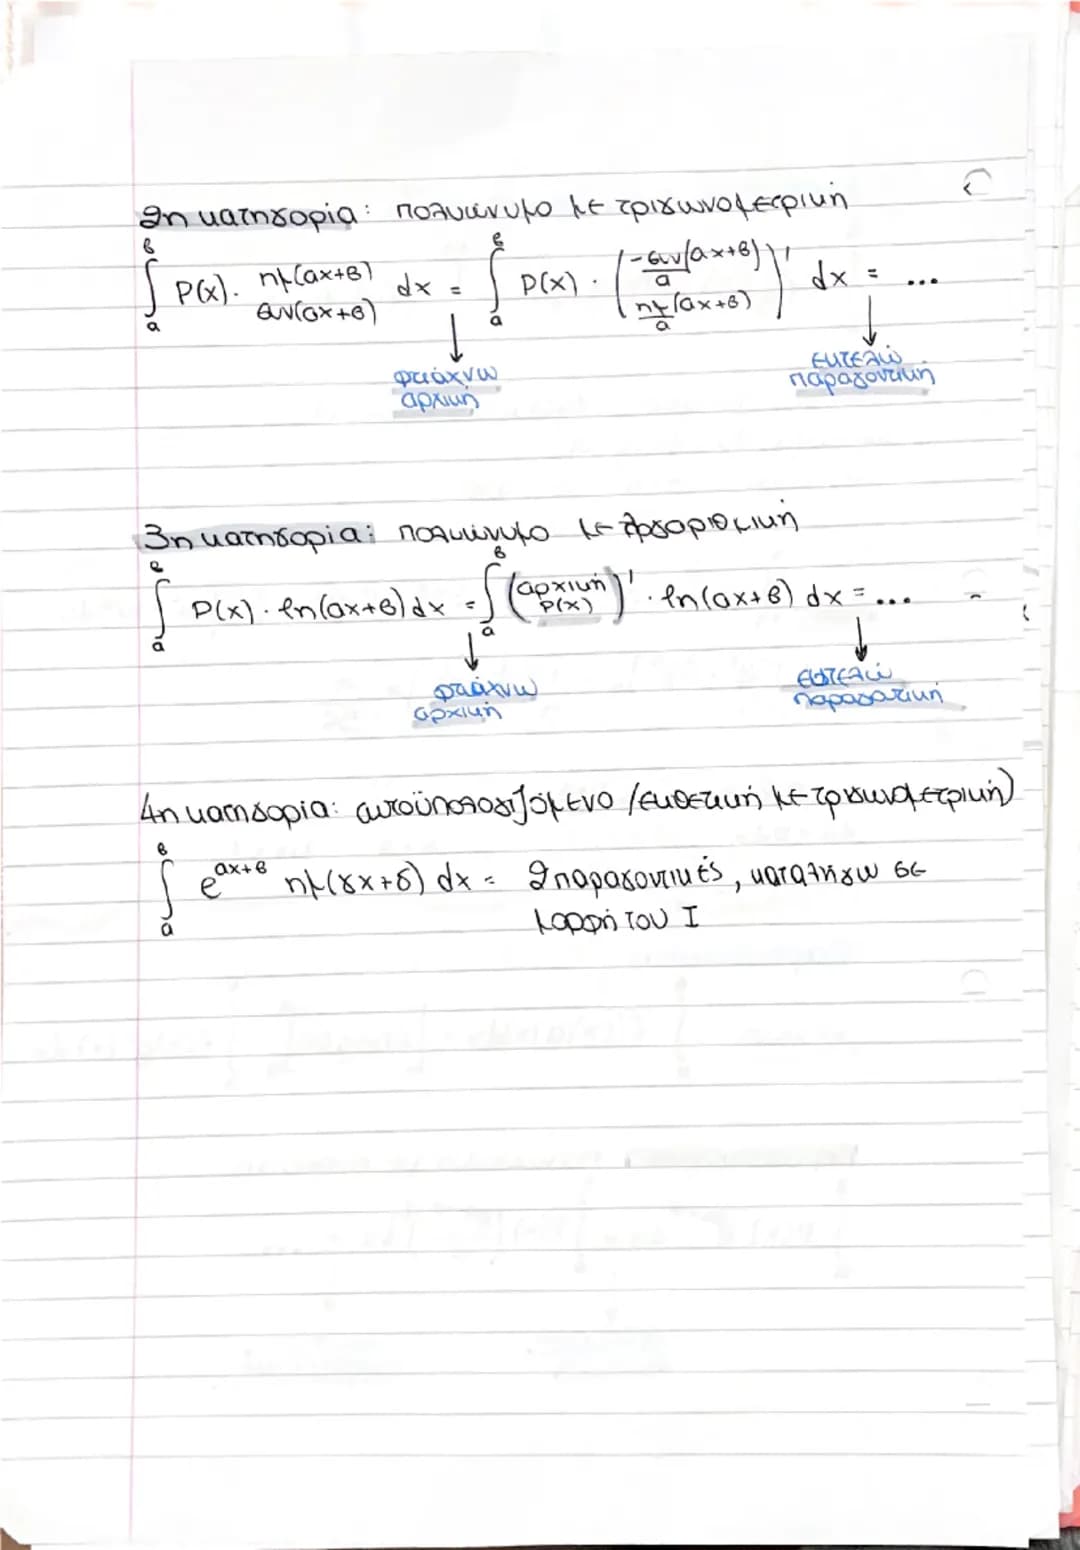 2η κατηγορία: πολυώνυμο με τριγωνομετρική
∫ₐᵝ P(x) · ημ(αx+β) / συν(αx+β) dx = ∫ₐᵝ P(x) · (-συν(αx+β)/α / ημ(αx+β)/α)' dx = ...
φτιάχνω εκτελώ
αρχική παραγοντική
3η κατηγορία: πολυώνυμο με λογαριθμική
∫ₐᵝ P(x) · ln(αx+β) dx = ∫ₐᵝ (αρχική P(x))' · ln(αx+β) dx = ...
φτιάχνω εκτελώ
αρχική παραγοντική
4η κατηγορία: αυτοϋπολογιζόμενο (εκθετική με τριγωνομετρική)
∫ₐᵝ e^(αx+β) ημ(γx+δ) dx = 2 παραγοντικές, καταλήγω σε
μορφή του I